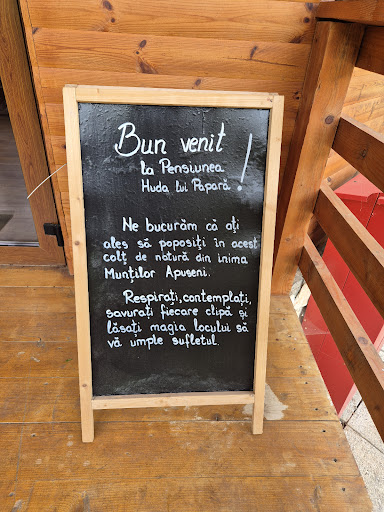 Bun venit !
la Pensiunea
Huda lui Papară
Ne bucurăm că ați
ales să poposiți în acest
colț de natură din inima
Munților Apuseni.
Respirați, contemplați,
savurați fiecare clipă și
lăsați magia locului să
vă umple sufletul.